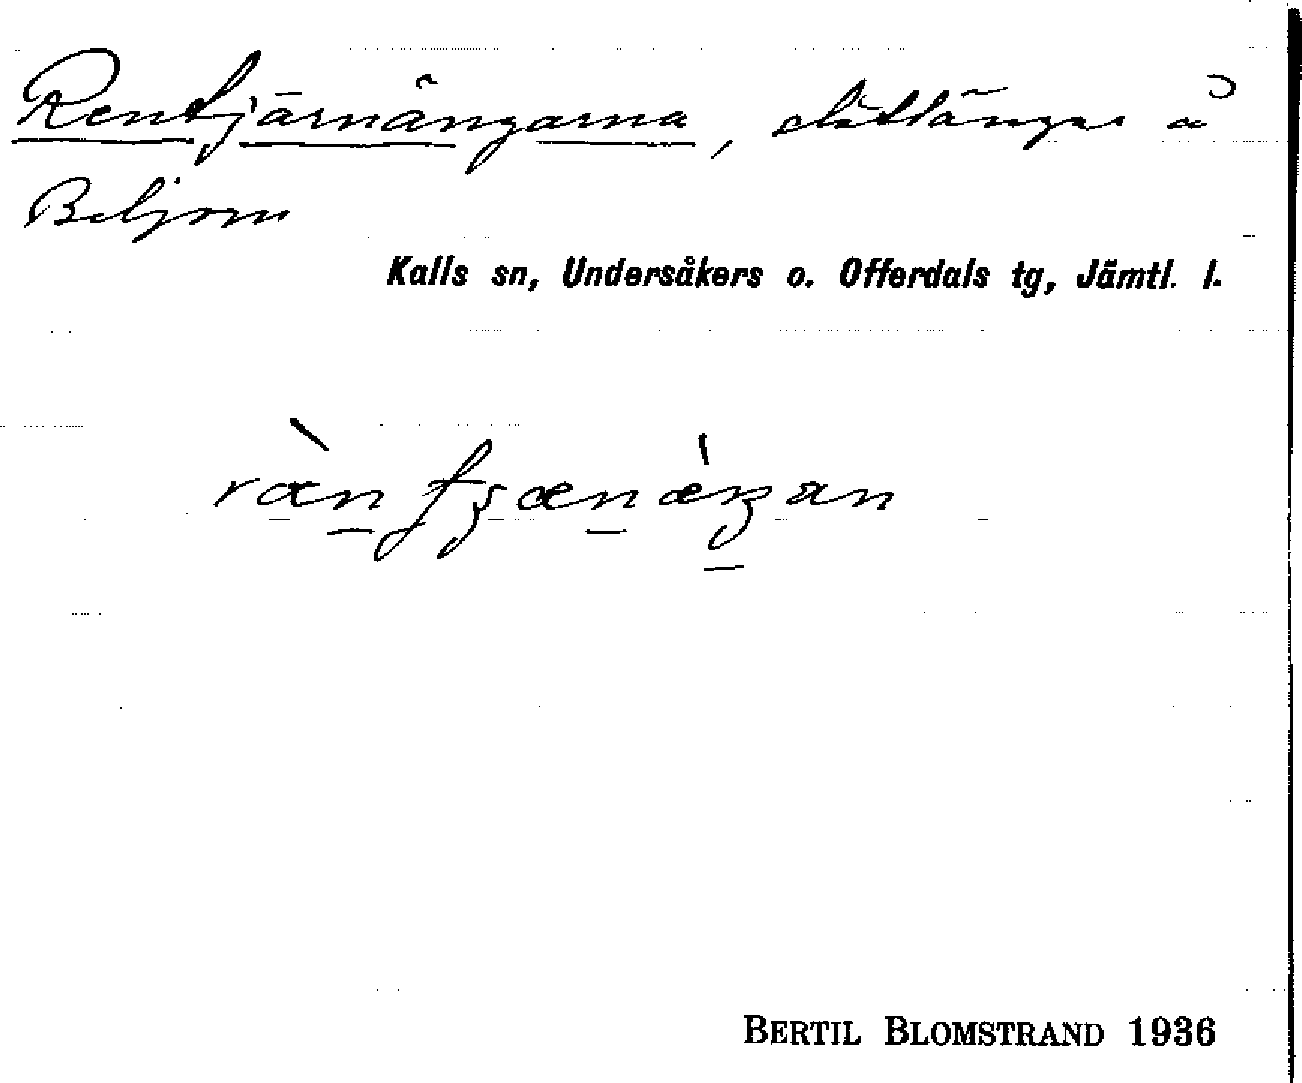 Rentjärnängarna, slåttängar å
Beljom
Kalls sn, Undersåkers o. Offerdals tg, Jämtl. l.
BERTIL BLOMSTRAND 1936